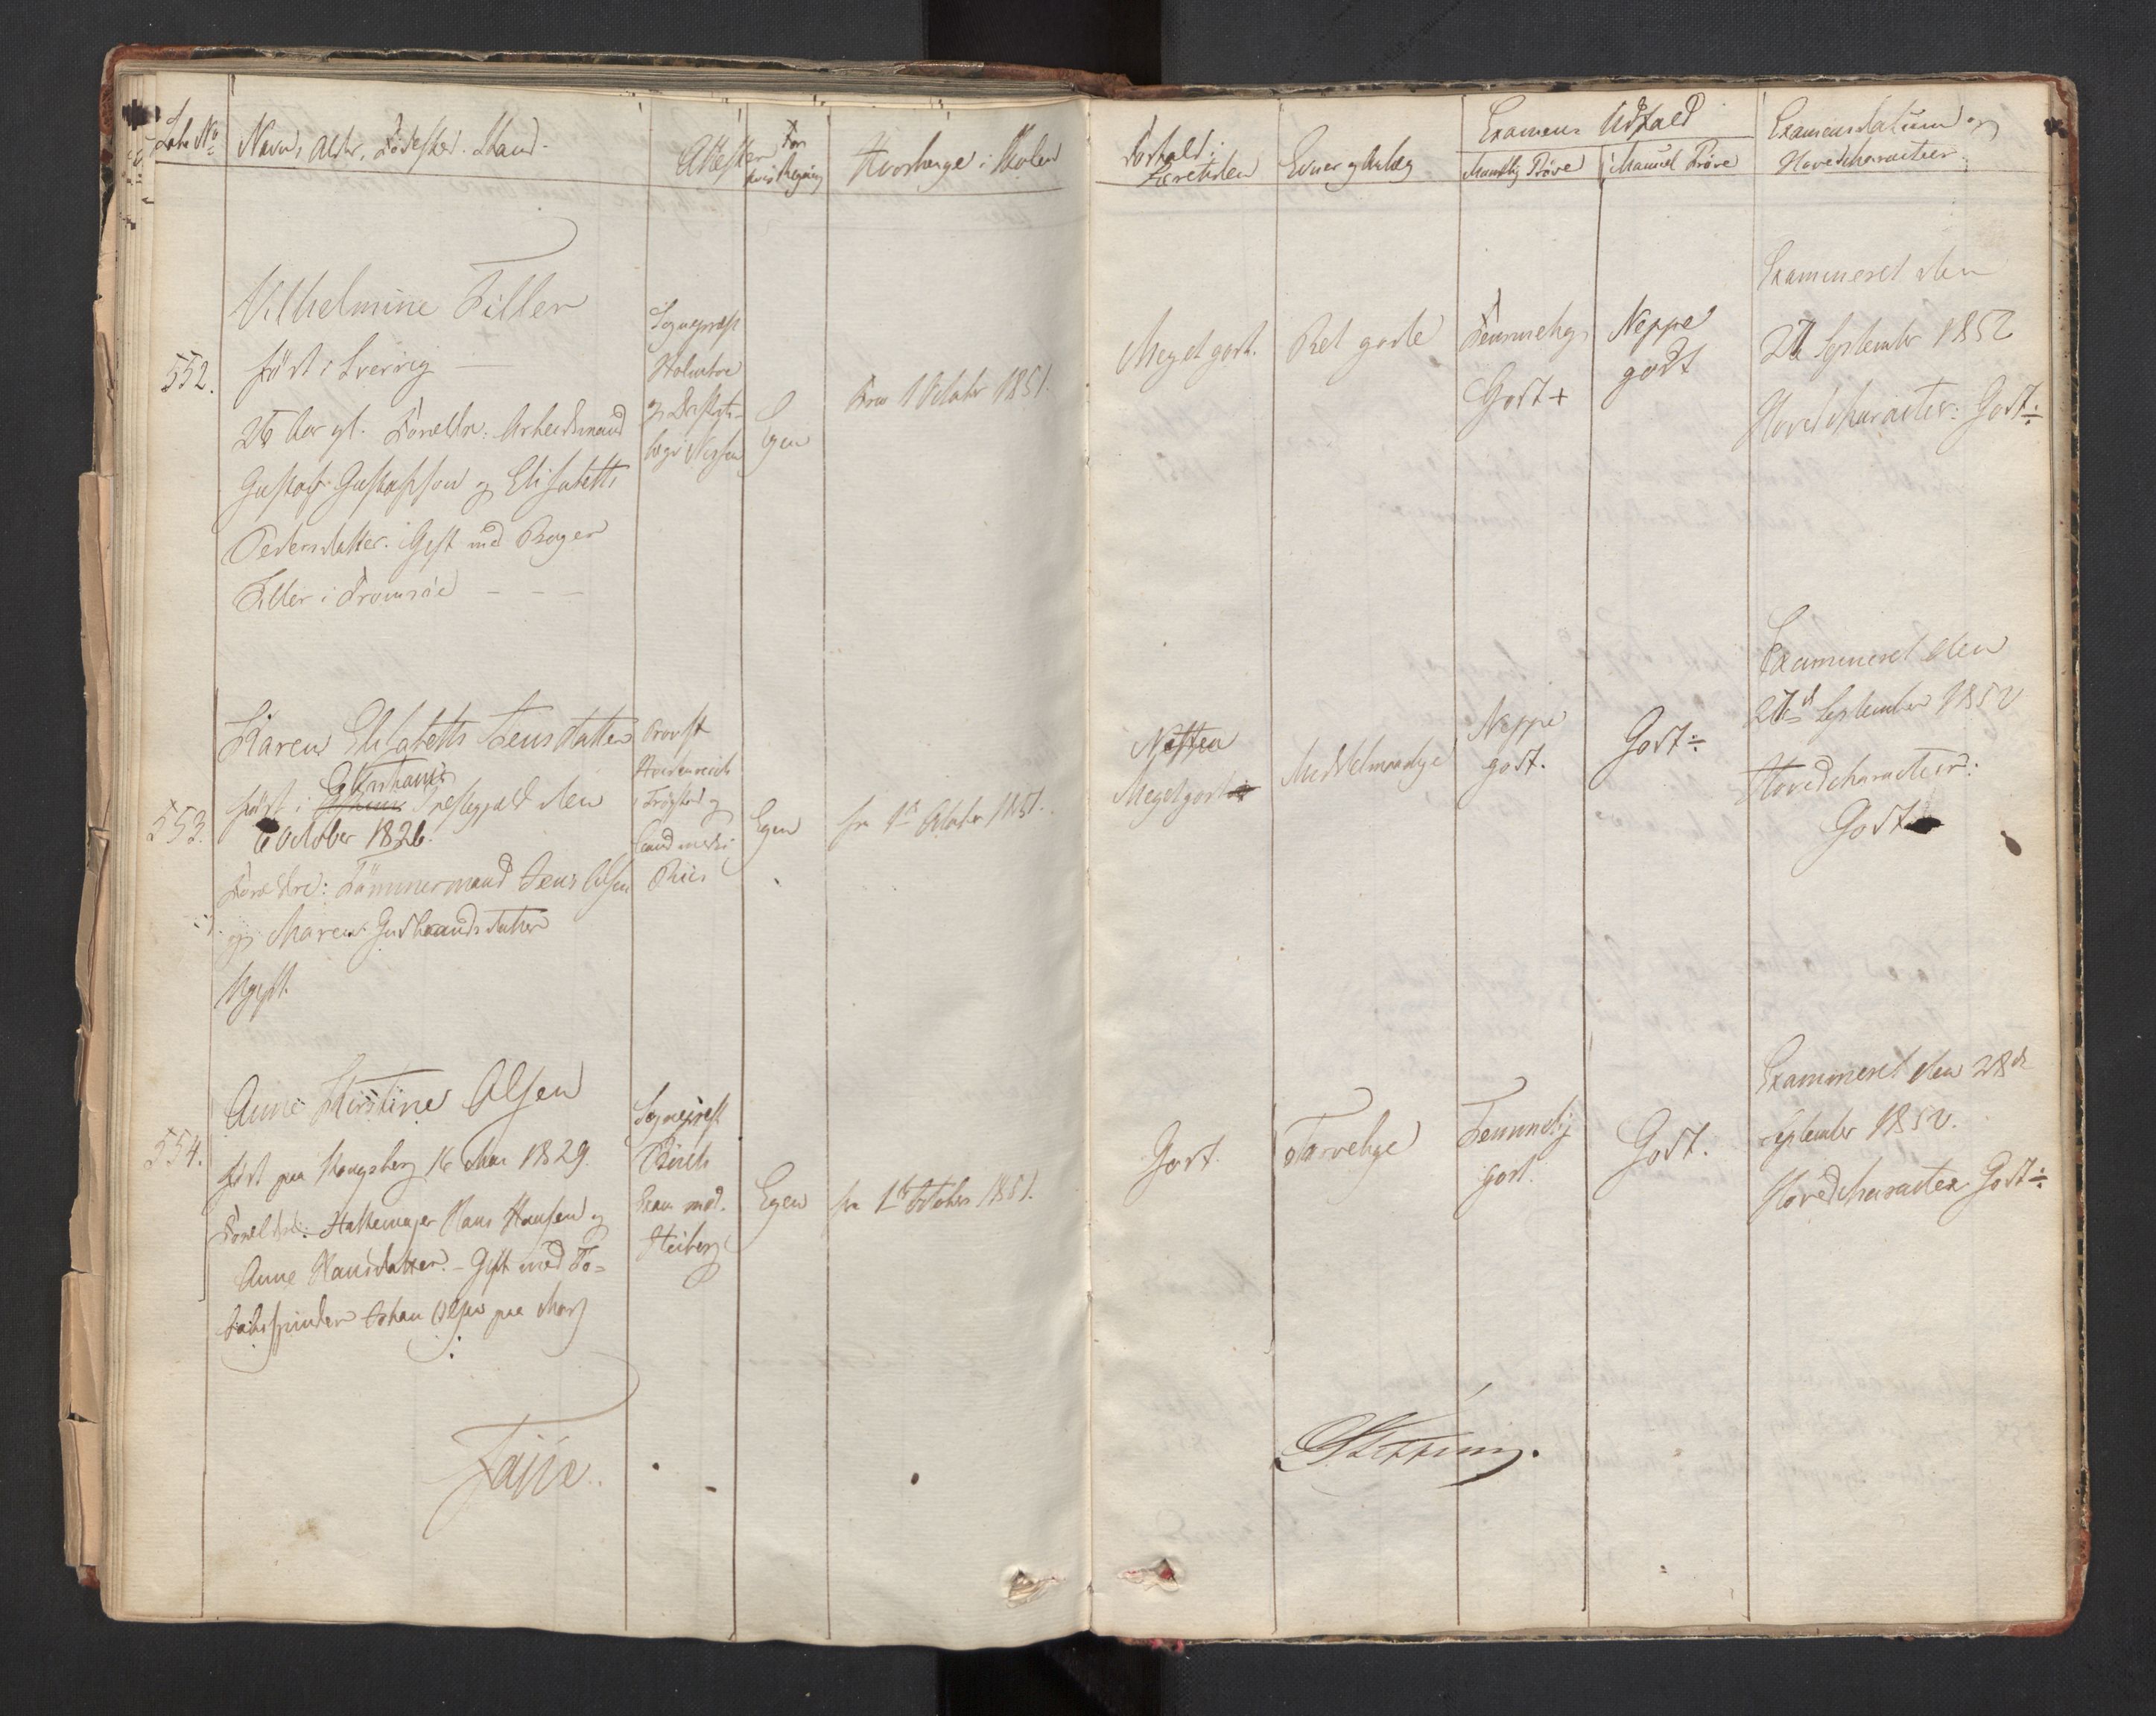 Løbe No
Navn, Alder, Fødested. Stand.
Attester
For
hvis Regning
Hvorlænge i Skolen
Forhold i
Læretiden
Evner og Anlæg
Examens Udfald
Mundtlig Prøve
Manuel Prøve
Examensdatum og
Hovedcharacteer
552.
Vilhelmine Filler
født i Sverrig
26 Aar gl. Forældre: Arbeidsmand
Gustaf Gustafson og Elisabeth
Pedersdatter. Gift med Roger
Filler i Tromsøe
Sognepræst
Holmboe
og Distrikts-
læge Nissen
Egen
Fra 1 October 1851.
Meget godt.
Ret gode
Temmelig
Godt +
Neppe
godt
Examineret den
27 September 1852
Hovedcharacter: Godt ÷
553.
Karen Elisabeth Jensdatter
Christiania
født i Præstegjeld den
6 October 1826.
Forældre: Tømmermand Jens Olsen
og Maren Gudbrandsdatter
Ugift.
Provst
Heidenreich
i Trøgstad og
Cand medic
Riis
Egen
fra 1ste October 1851.
Meget godt
Middelmaadige
Neppe
godt.
Godt ÷
Examineret den
27de September 1852
Hovedcharacteer:
Godt
554.
Anne Kirstine Olsen
født paa Kongsberg 16 Mai 1829.
Forældre: Hattemager Hans Hansen og
Anne Hansdatter. - Gift med To-
baksspinder Johan Olsen paa
Sognepræst
Exam. med.
Heiberg
Egen
fra 1ste October 1851.
Godt.
Tarvelige
Temmelig
godt.
Godt.
Examineret den 28de
September 1852.
Hovedcharacter Godt ÷
Faye.